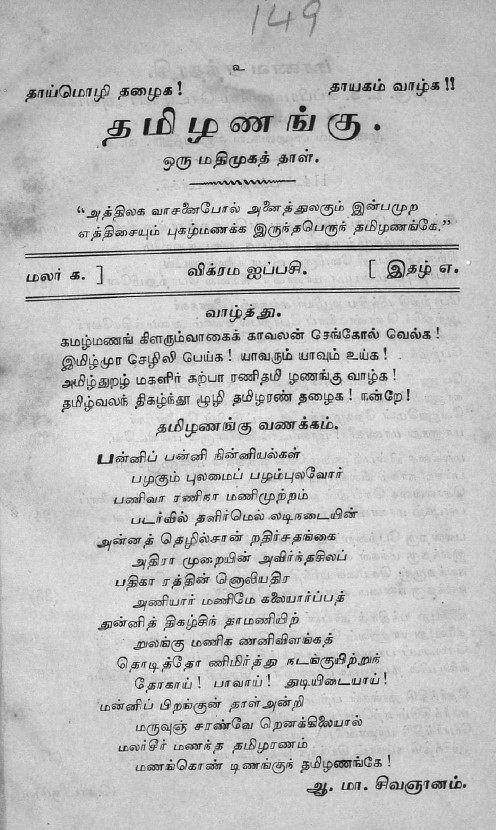 149
உ
தாய்மொழி தழைக! தாயகம் வாழ்க!!
தமிழணங்கு.
ஒரு மதிமுகத் தாள்.
"அத்திலக வாசனைபோல் அனைத்துலகும் இன்பமுற
எத்திசையும் புகழ்மணக்க இருந்தபெருந் தமிழணங்கே."
மலர் க. ] விக்ரம ஐப்பசி. [ இதழ் எ.
வாழ்த்து.
கமழ்மணங் கிளரும்வாகைக் காவலன் செங்கோல் வெல்க!
இமிழ்முர செழிலி பெய்க! யாவரும் யாவும் உய்க!
அமிழ்துறழ் மகளிர் கற்பா ரணிதமி ழணங்கு வாழ்க!
தமிழ்வலந் திகழ்ந்தூ ழூழி தமிழரண் தழைக! நன்றே!
தமிழணங்கு வணக்கம்.
பன்னிப் பன்னி நின்னியல்கள்
பழகும் புலமைப் பழம்புலவோர்
பணிவா ரணிகா மணிமுற்றம்
படர்வில் தளிர்மெல் லடிநடையின்
அன்னத் தெழில்சான் றதிர்சதங்கை
அதிரா முறையின் அவிர்ந்தசிலப்
பதிகா ரத்தின் னொலியதிர
அணியார் மணிமே கலையார்ப்பத்
துன்னித் திகழ்சிந் தாமணியிற்
றுலங்கு மணிக ணனிவிளங்கத்
தொடித்தோ ணிமிர்த்து நடங்குயிற்றுந்
தோகாய்! பாவாய்! துடியிடையாய்!
மன்னிப் பிறங்குன் தாள்அன்றி
மருவுஞ் சரண்வே றெனக்கிலையால்
மலர்சீர் மணந்த தமிழரணம்
மணங்கொண் டிணங்குந் தமிழணங்கே!
ஆ. மா. சிவஞானம்.